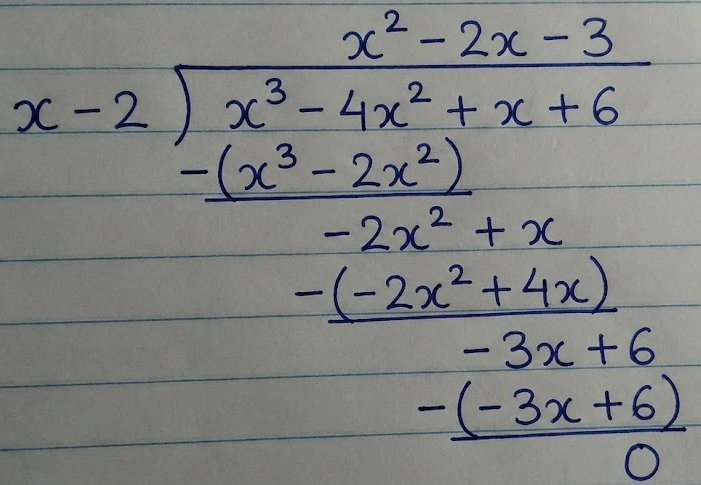 x² - 2x - 3
x - 2 ) x³ - 4x² + x + 6
-(x³ - 2x²)
-2x² + x
-(-2x² + 4x)
-3x + 6
-(-3x + 6)
0